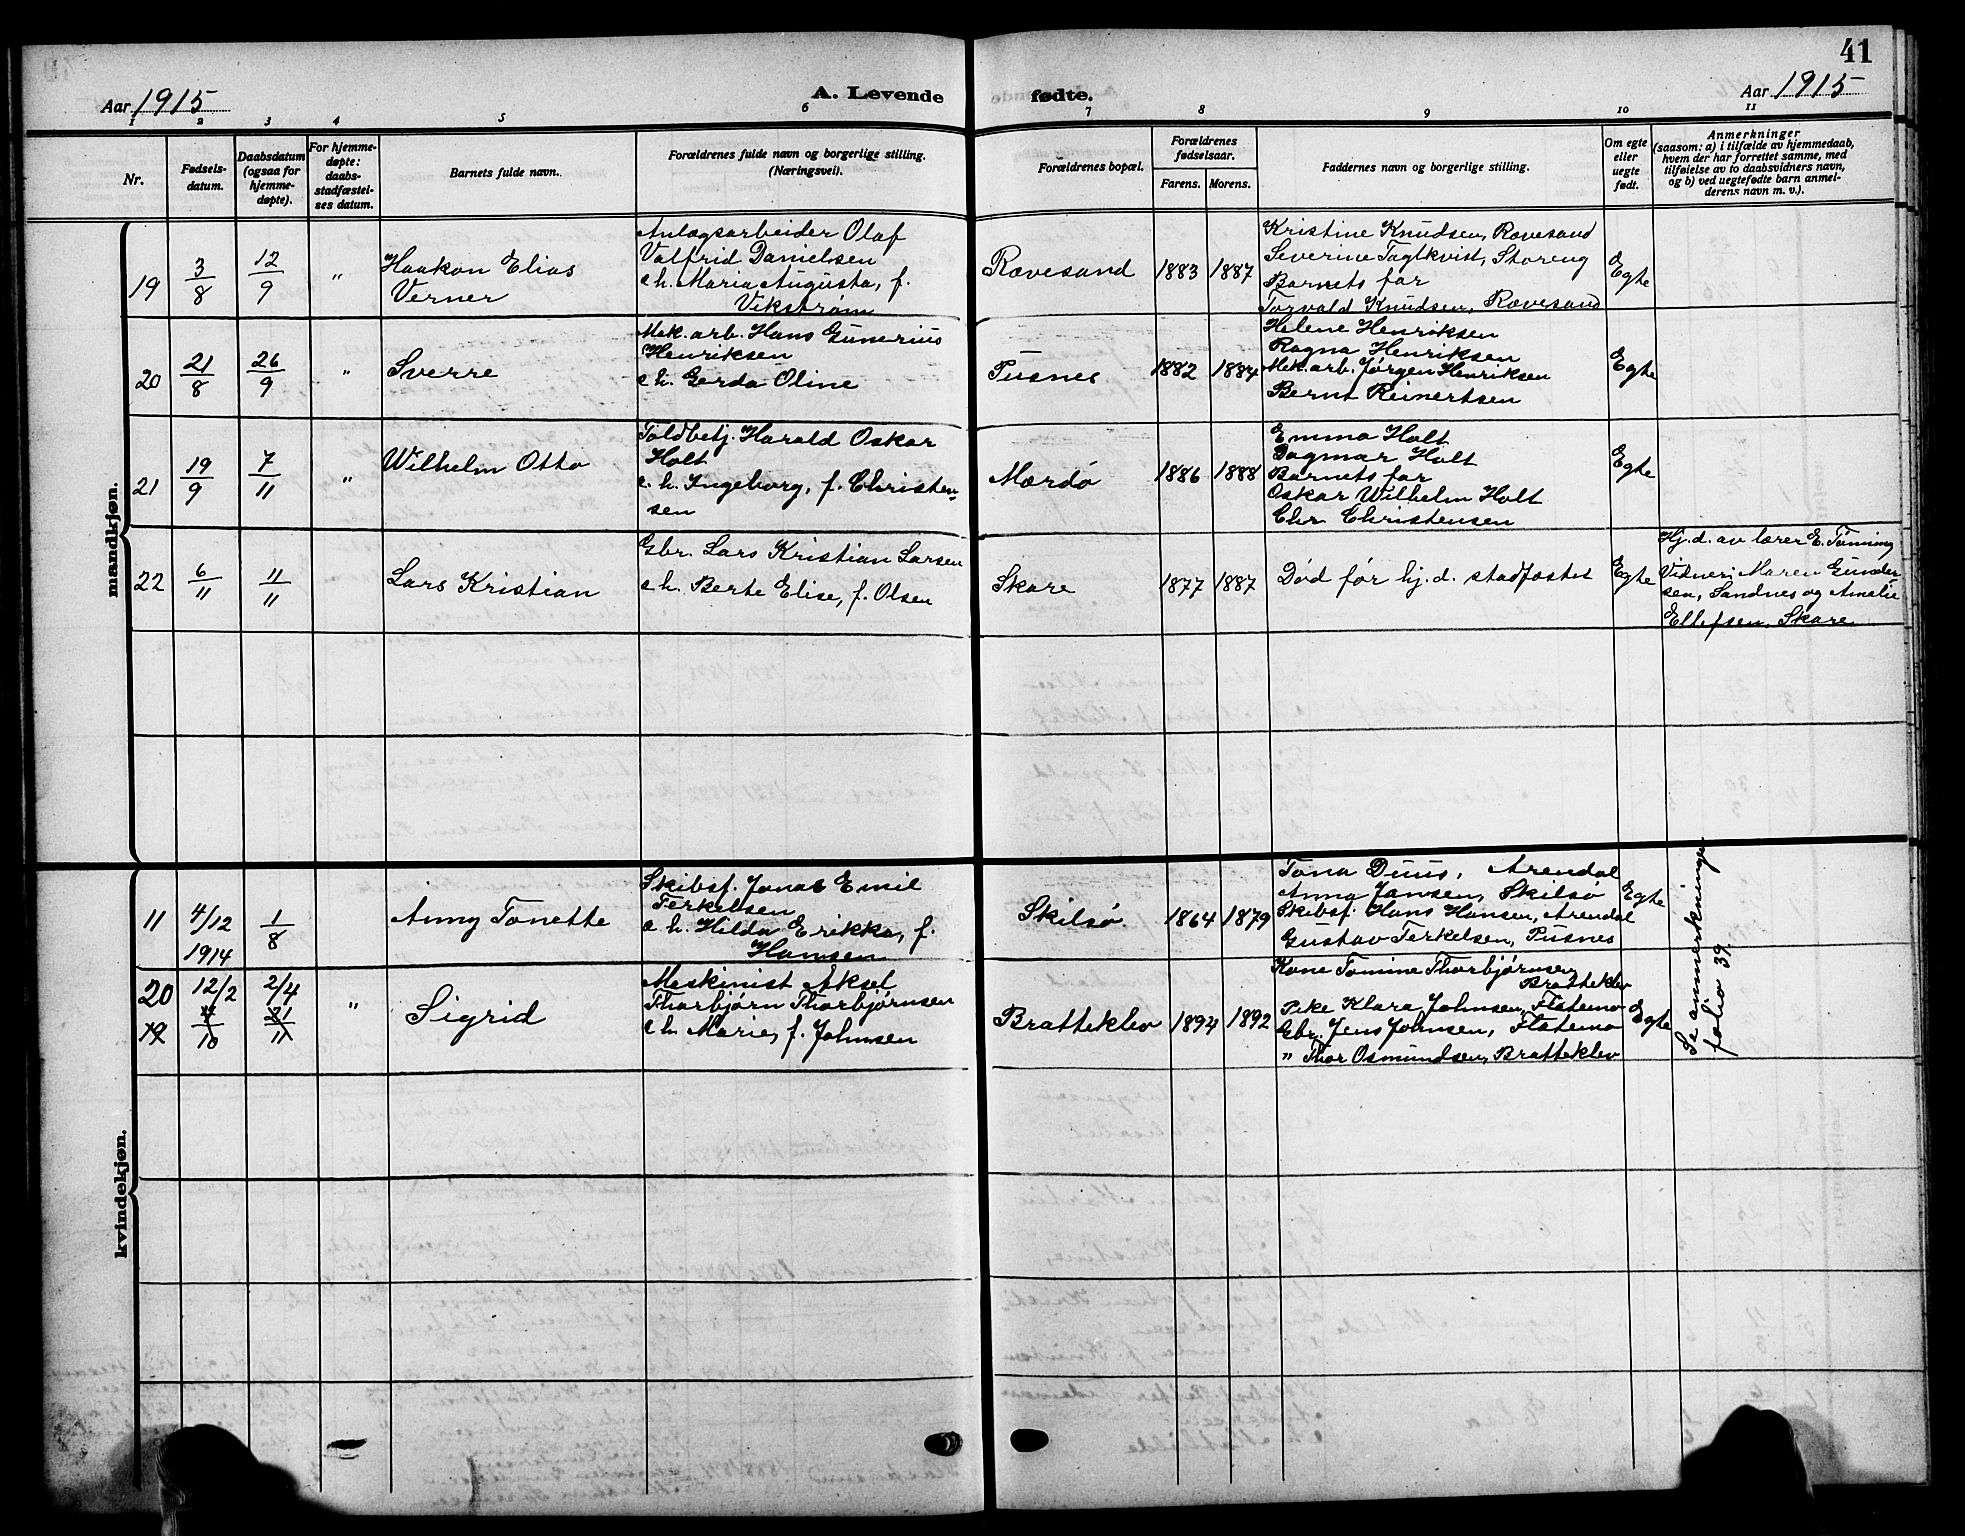 41
Aar 1915
A. Levende fødte.
Aar 1915
1 2 3 4 5 6 7 8 9 10 11
Nr.
Fødsels-
datum.
Daabsdatum
(ogsaa for
hjemme-
døpte).
For hjemme-
døpte:
daabs-
stadfæstel-
ses datum.
Barnets fulde navn.
Forældrenes fulde navn og borgerlige stilling.
(Næringsvei).
Forældrenes bopæl.
Forældrenes
fødselsaar.
Farens. Morens.
Faddernes navn og borgerlige stilling.
Om egte
eller
uegte
født.
Anmerkninger
(saasom: a) i tilfælde av hjemmedaab,
hvem der har forrettet samme, med
tilføielse av to daabsvidners navn,
og b) ved uegtefødte barn anmel-
derens navn m. v.).
mandkjøn.
19
3/8
12/9
"
Haakon Elias
Verner
Anlægsarbeider Olaf
Valfrid Danielsen
e.h. Maria Augusta, f.
Vikstrøm
Rævesand
1883 1887
Kristine Knudsen, Rævesand
Severine Tagtkvist, Storeng
Barnets far
Torvald Knudsen, Rævesand
Egte
20
21/8
26/9
"
Sverre
Mek. arb. Hans Gunerius
Henriksen
e.h. Gerda Oline
Pusnes
1882 1884
Helene Henriksen
Ragna Henriksen
Mek. arb. Jørgen Henriksen
Bernt Reinertsen
Egte
21
19/9
7/11
"
Wilhelm Otto
Toldbetj. Harald Oskar
Holt
e.h. Ingeborg, f. Christen-
sen
Mærdø
1886 1888
Emma Holt
Dagmar Holt
Barnets far
Oskar Wilhelm Holt
Chr. Christensen
Egte
22
6/11
11/11
Lars Kristian
Gbr. Lars Kristian Larsen
e.h. Berte Elise, f. Olsen
Skare
1877 1887
Død før hj. d. stadfæstet
Egte
Hj. d. av lærer E. Tønning
Vidner: Maren Gunder
sen, Sandnes og Amalie
Ellefsen, Skare
kvindekjøn.
11
4/12
1914
1/8
Anny Tonette
Skibsf. Jonas Emil
Terkelsen
e.h. Hilda Erikka, f.
Hansen
Skilsø
1864 1879
Tona Duus, Arendal
Anna Jansen, Skilsø
Skibsf. Hans Hansen, Arendal
Gustav Terkelsen, Pusnes
Egte
Se anmerkninger
folio 39.
20
12/2
2/4
"
12
4/10
21/11
Sigrid
Maskinist Aksel
Thorbjørn Thorbjørnsen
e.h. Marie, f. Johnsen
Bratteklev
1894 1892
Kone Tomine Thorbjørnsen,
Bratteklev
Pike Klara Johnsen, Flatemo
Gbr. Jens Johnsen, Flatemo
" Thor Osmundsen, Bratteklev
Egte